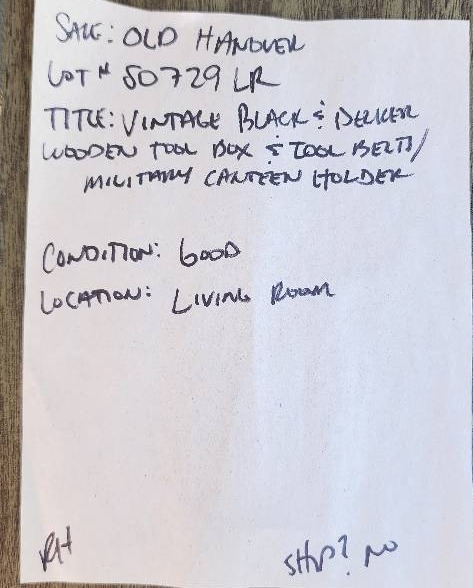 SALE: OLD HANOVER
LOT # 50729 LR
TITLE: VINTAGE BLACK & DECKER
WOODEN TOOL BOX & TOOL BELTS/
MILITARY CANTEEN HOLDER
CONDITION: GOOD
LOCATION: LIVING ROOM
RH
SHIP? NO